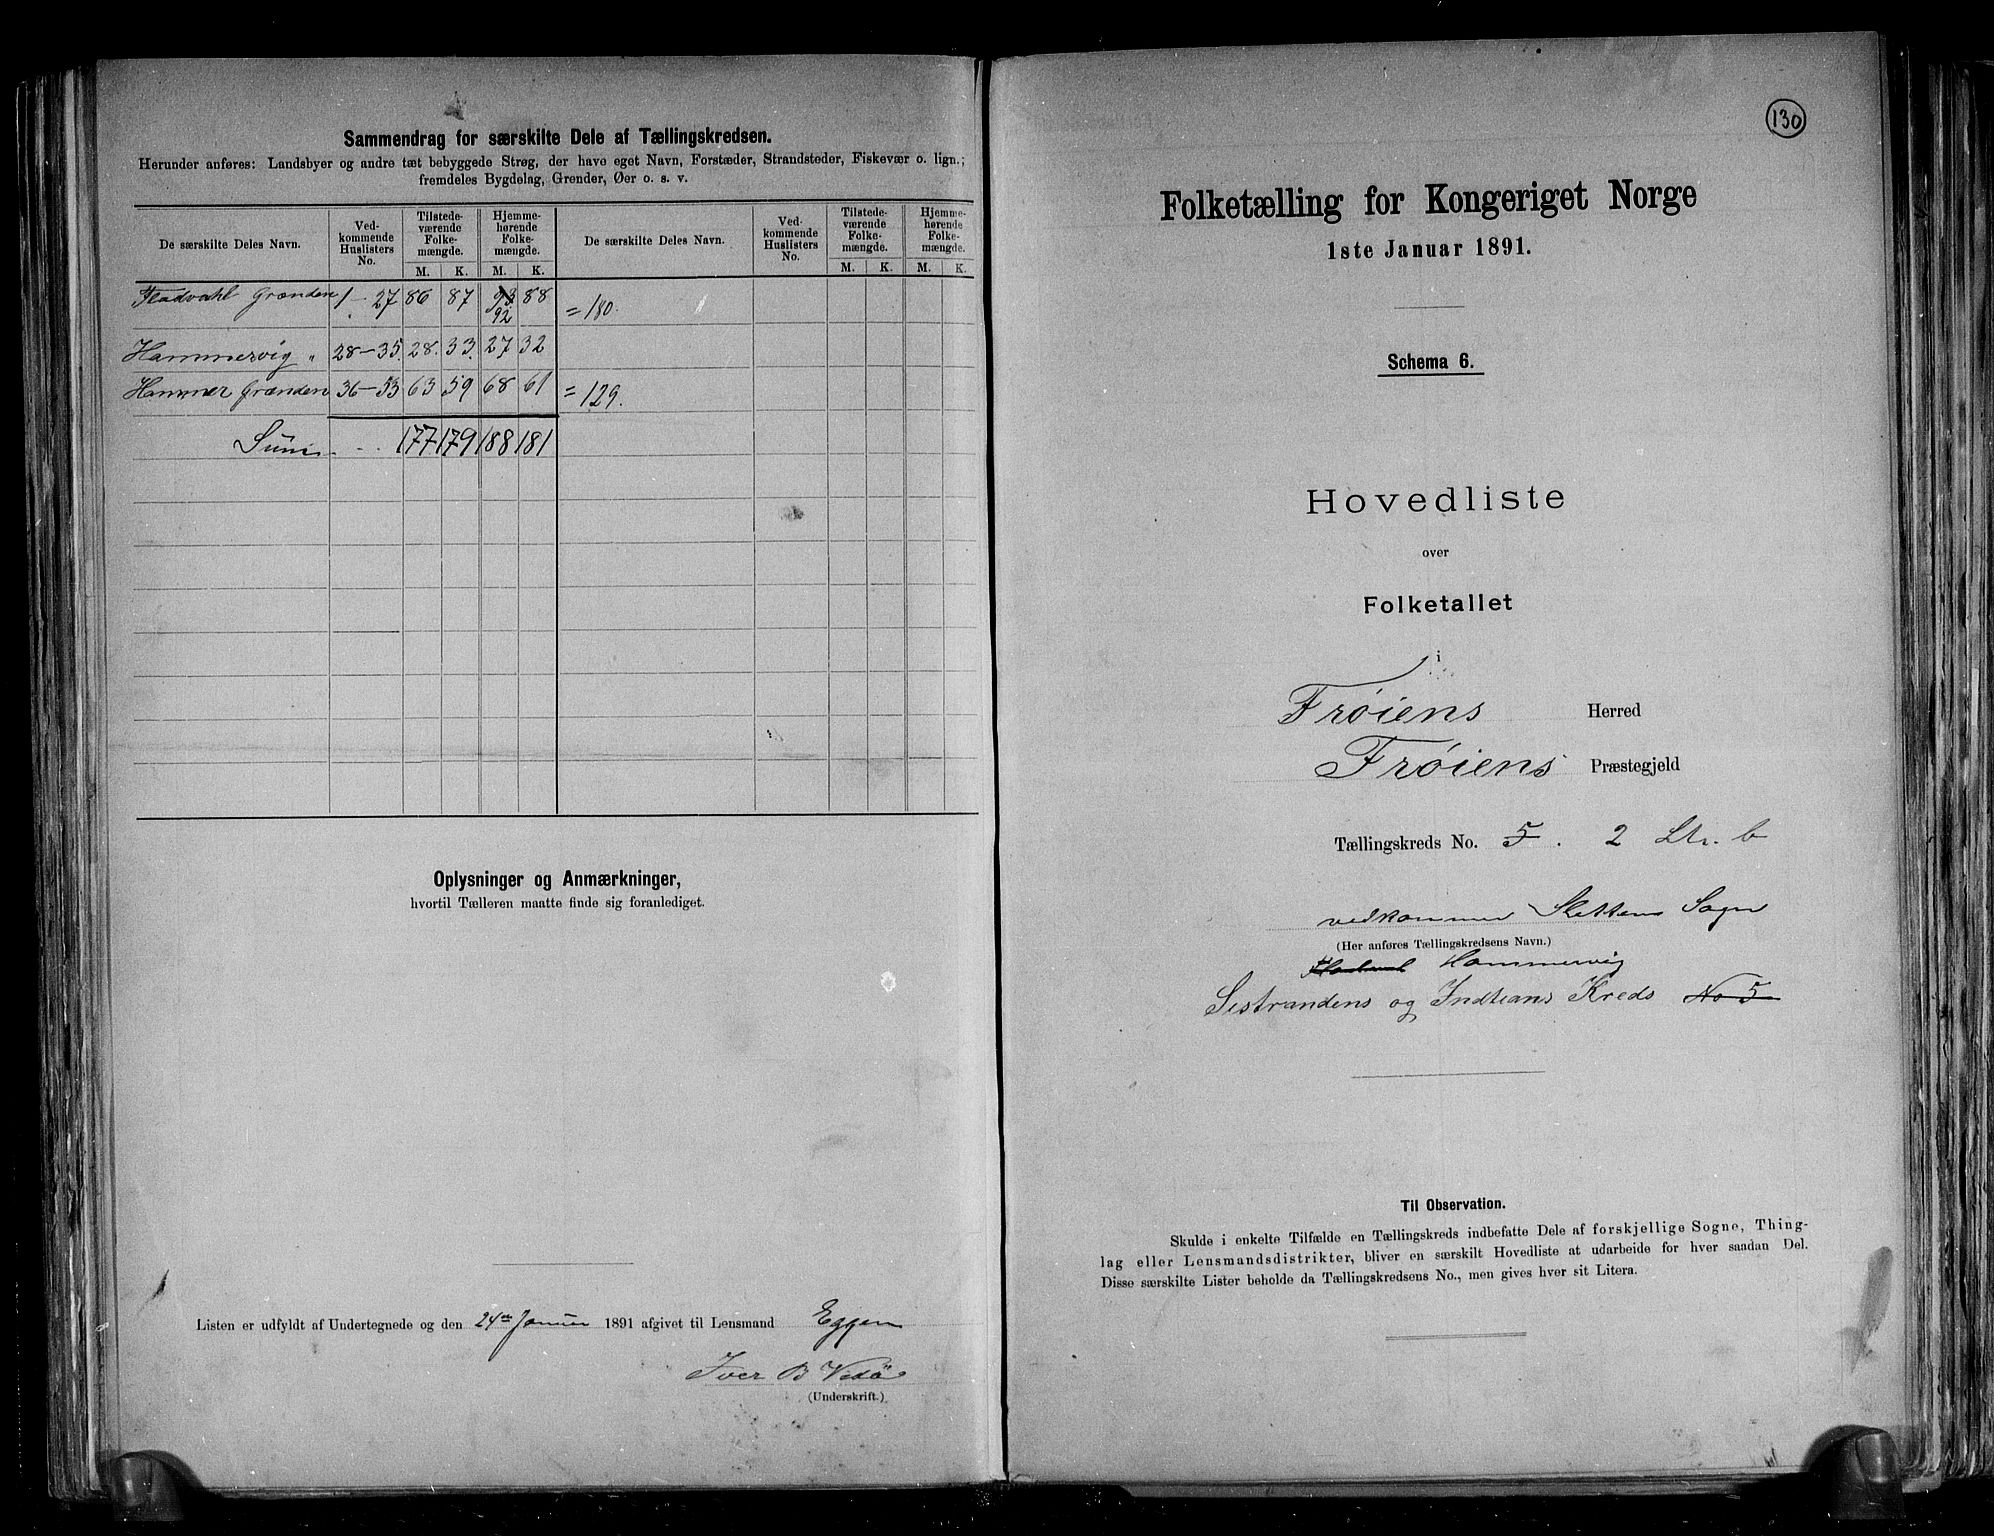 Sammendrag for særskilte Dele af Tællingskredsen.
Herunder anføres: Landsbyer og andre tæt bebyggede Strøg, der have eget Navn, Forstæder, Strandsteder, Fiskevær o. lign.;
fremdeles Bygdelag, Grender, Øer o. s. v.
De særskilte Deles Navn. Ved-kommende Huslisters No. Tilstede-værende Folke-mængde. Hjemme-hørende Folke-mængde. De særskilte Deles Navn. Ved-kommende Huslisters No. Tilstede-værende Folke-mængde. Hjemme-hørende Folke-mængde.
M. K. M. K. M. K. M. K.
Fladvahl Grænden 1 - 27 86 87 93 88
92 = 180.
Hammervig " 28-35. 28. 33. 27 32
Hammer Grænden 36-53 63 59 68 61 = 129.
Sum - - 177 179 188 181
Oplysninger og Anmærkninger,
hvortil Tælleren maatte finde sig foranlediget.
Listen er udfyldt af Undertegnede og den 24de Januar 1891 afgivet til Lensmand Eggen
Iver B Vedø
(Underskrift.)
130
Folketælling for Kongeriget Norge
1ste Januar 1891.
Schema 6.
Hovedliste
over
Folketallet
i
Frøiens Herred
Frøiens Præstegjeld
Tællingskreds No. 5. 2 Ltr. b
vedkommer Slettens Sogn
(Her anføres Tællingskredsens Navn.)
Hammervig
Sistrandens og Indteans Kreds No 5
Til Observation.
Skulde i enkelte Tilfælde en Tællingskreds indbefatte Dele af forskjellige Sogne, Thing-
lag eller Lensmandsdistrikter, bliver en særskilt Hovedliste at udarbeide for hver saadan Del.
Disse særskilte Lister beholde da Tællingskredsens No., men gives hver sit Litera.